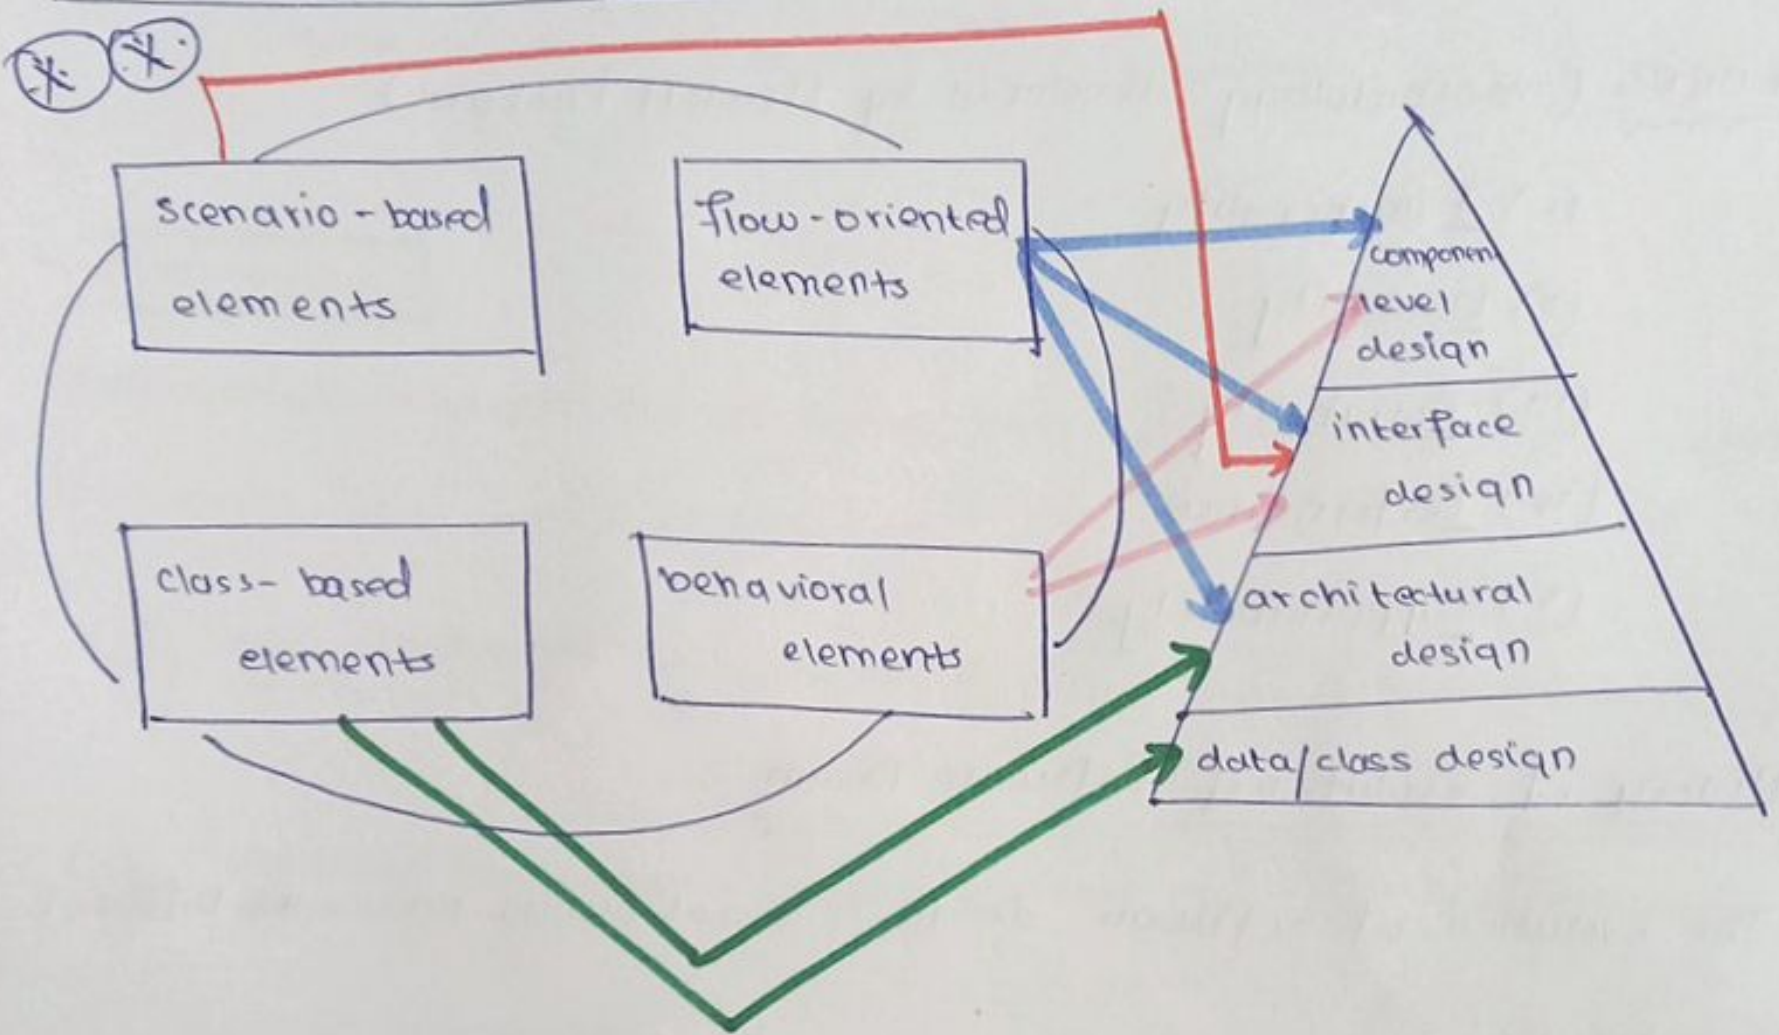 scenario-based
elements
flow-oriented
elements
class-based
elements
behavioral
elements
componen
level
design
interface
design
architectural
design
data/class design